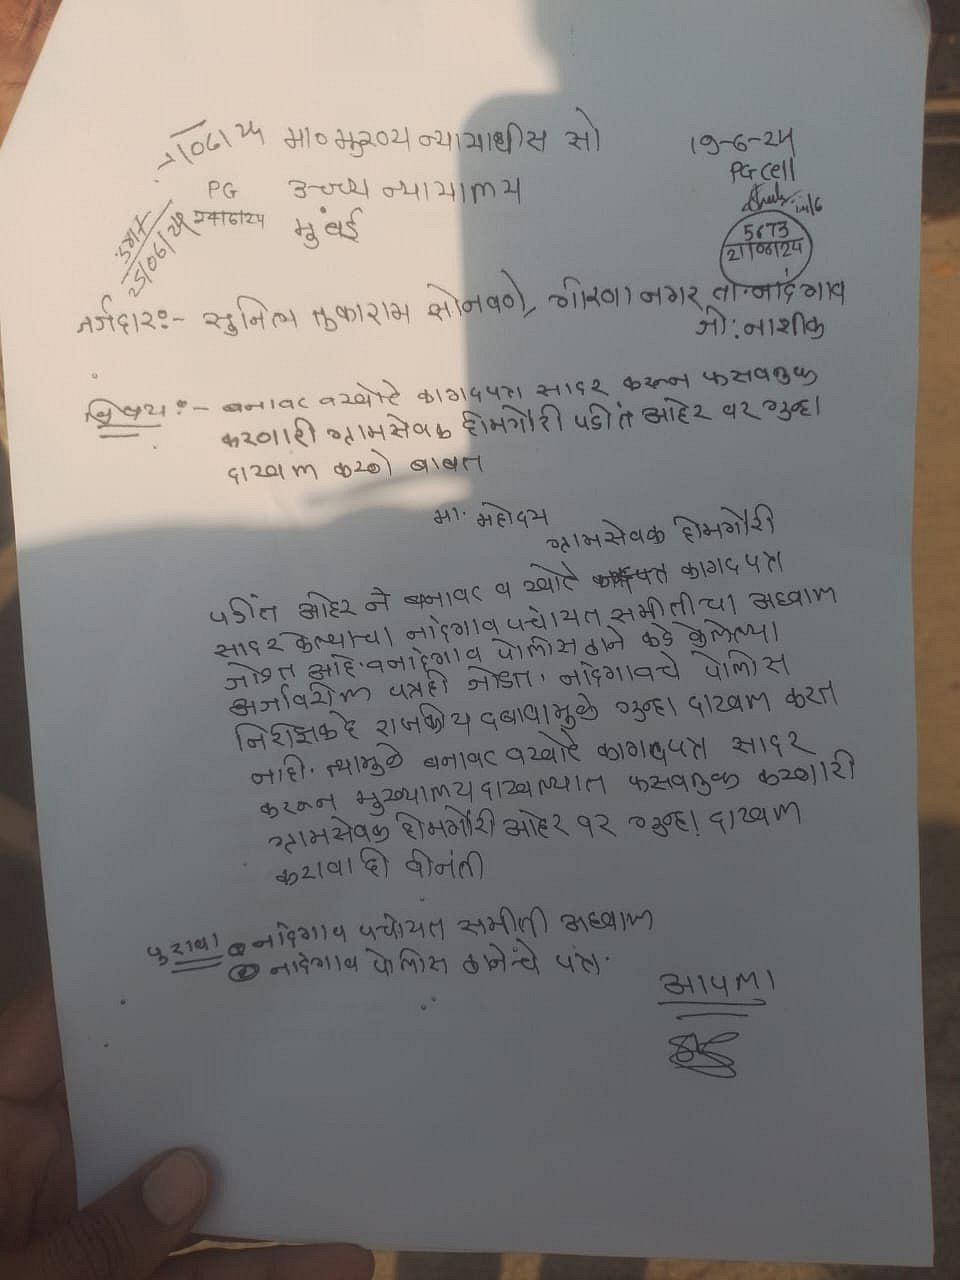 मा० मुख्य न्यायाधीस सो
उच्च न्यायालय
मुंबई
19-6-24
PG cell
5673
21/06/24
PG
25/06/24
अर्जदार:- सुनिल तुकाराम सोनवणे, गीरणा नगर ता-नांदगाव
जी: नाशीक
विषय:- बनावट व खोटे कागदपत्र सादर करून फसवणुक
करणारी ग्रामसेवक हीमगौरी पडींत आहेर वर गुन्हा
दाखल करणे बाबत
मा. महोदय
ग्रामसेवक हीमगौरी
पडींत आहेर ने बनावट व खोटे कागदपत्र
सादर केल्याचा नांदगाव पचांयत समीतीचा अहवाल
जोडत आहे. व नादंगाव पोलीस ठाने कडे केलेल्या
अर्जावरील पत्रही जोडत. नांदगावचे पोलीस
निरीक्षक हे राजकीय दबावामुळे गुन्हा दाखल करत
नाही. त्यामुळे बनावट व खोटे कागदपत्र सादर
करून मुख्यालय दाखल्यात फसवणुक करणारी
ग्रामसेवक हीमगौरी आहेर वर गुन्हा दाखल
करावा ही वीनंती
पुरावा ① नांदगाव पचांयत समीती अहवाल
② नादंगाव पोलीस ठानेचे पत्र.
आपला